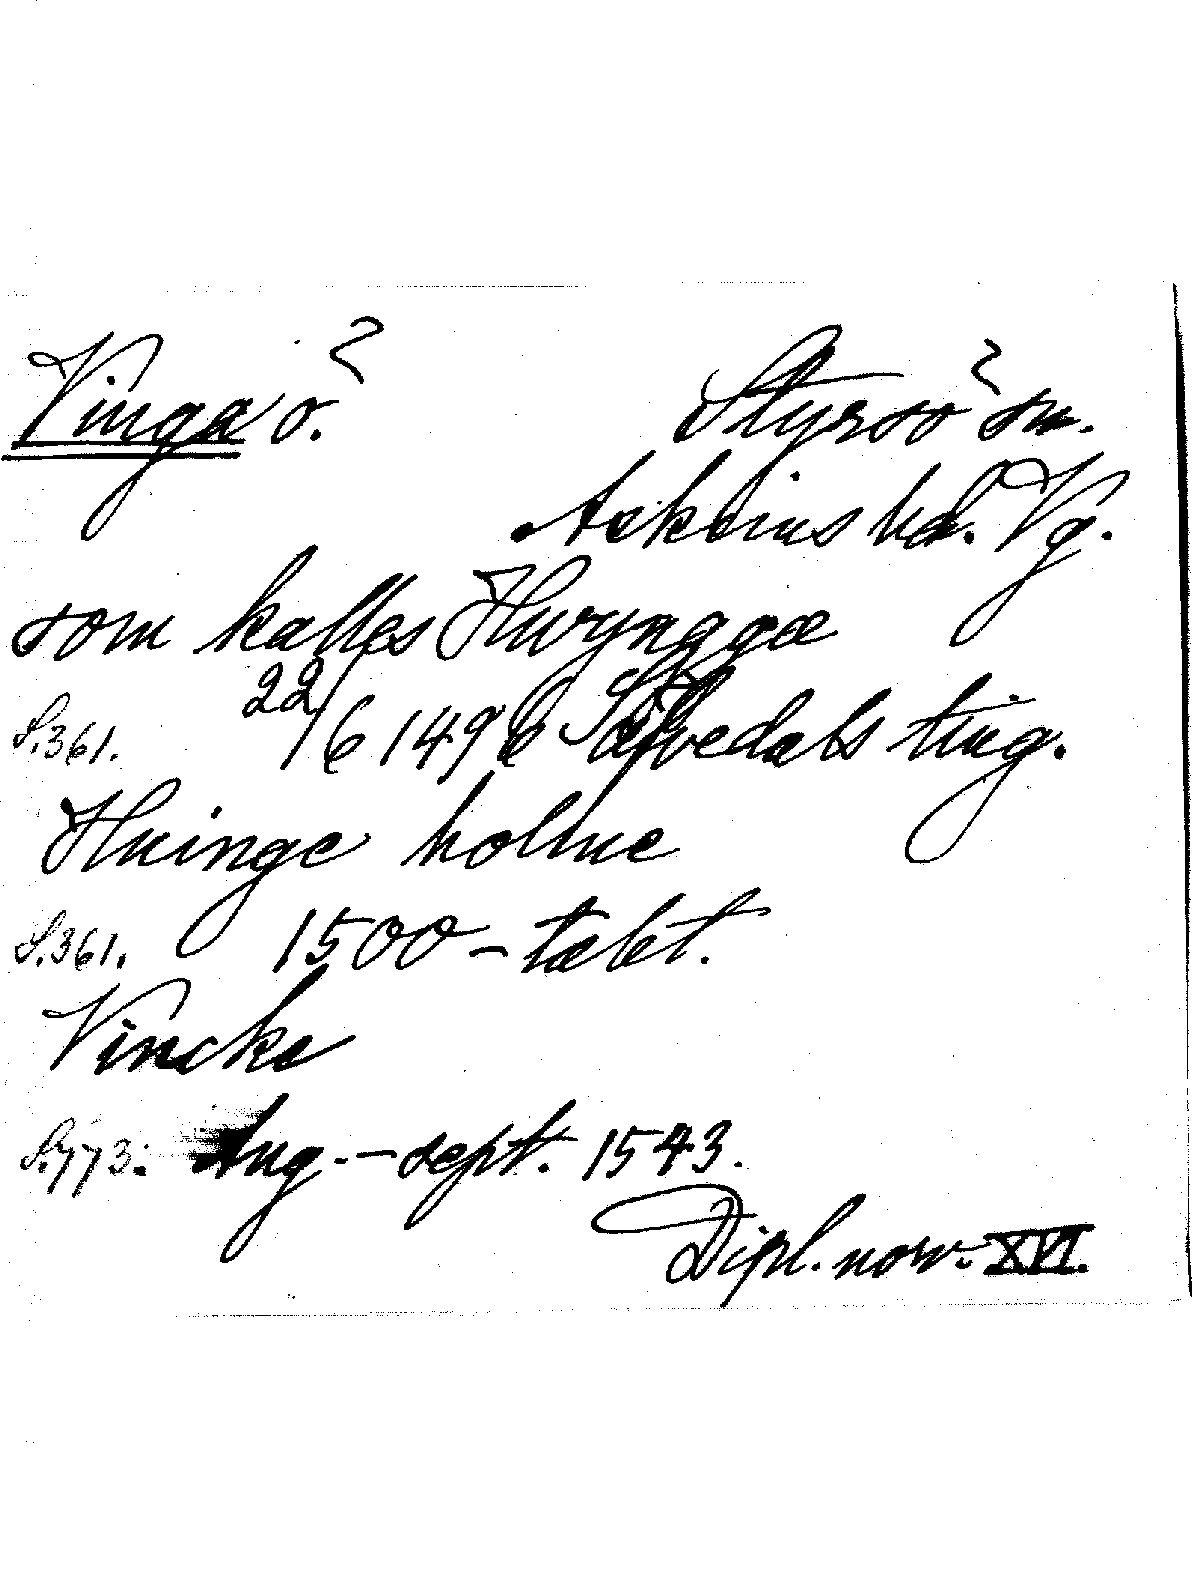 Vinga ö.   Styrsö sn.
Askims hd. Vg.
som kalles Hwrynggæ
S.361.   22/6 1496 Sævedals ting.
Huinge holme
S.361.   1500-talet.
Vincke
S.773. Aug.-sept. 1543.
Dipl. norv. XVI.